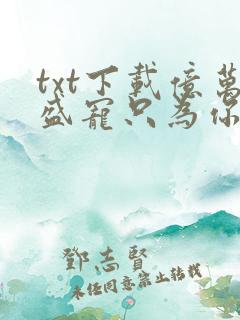 txt下載億萬
盛寵只為你
鄧志賢
未經同意禁止轉載